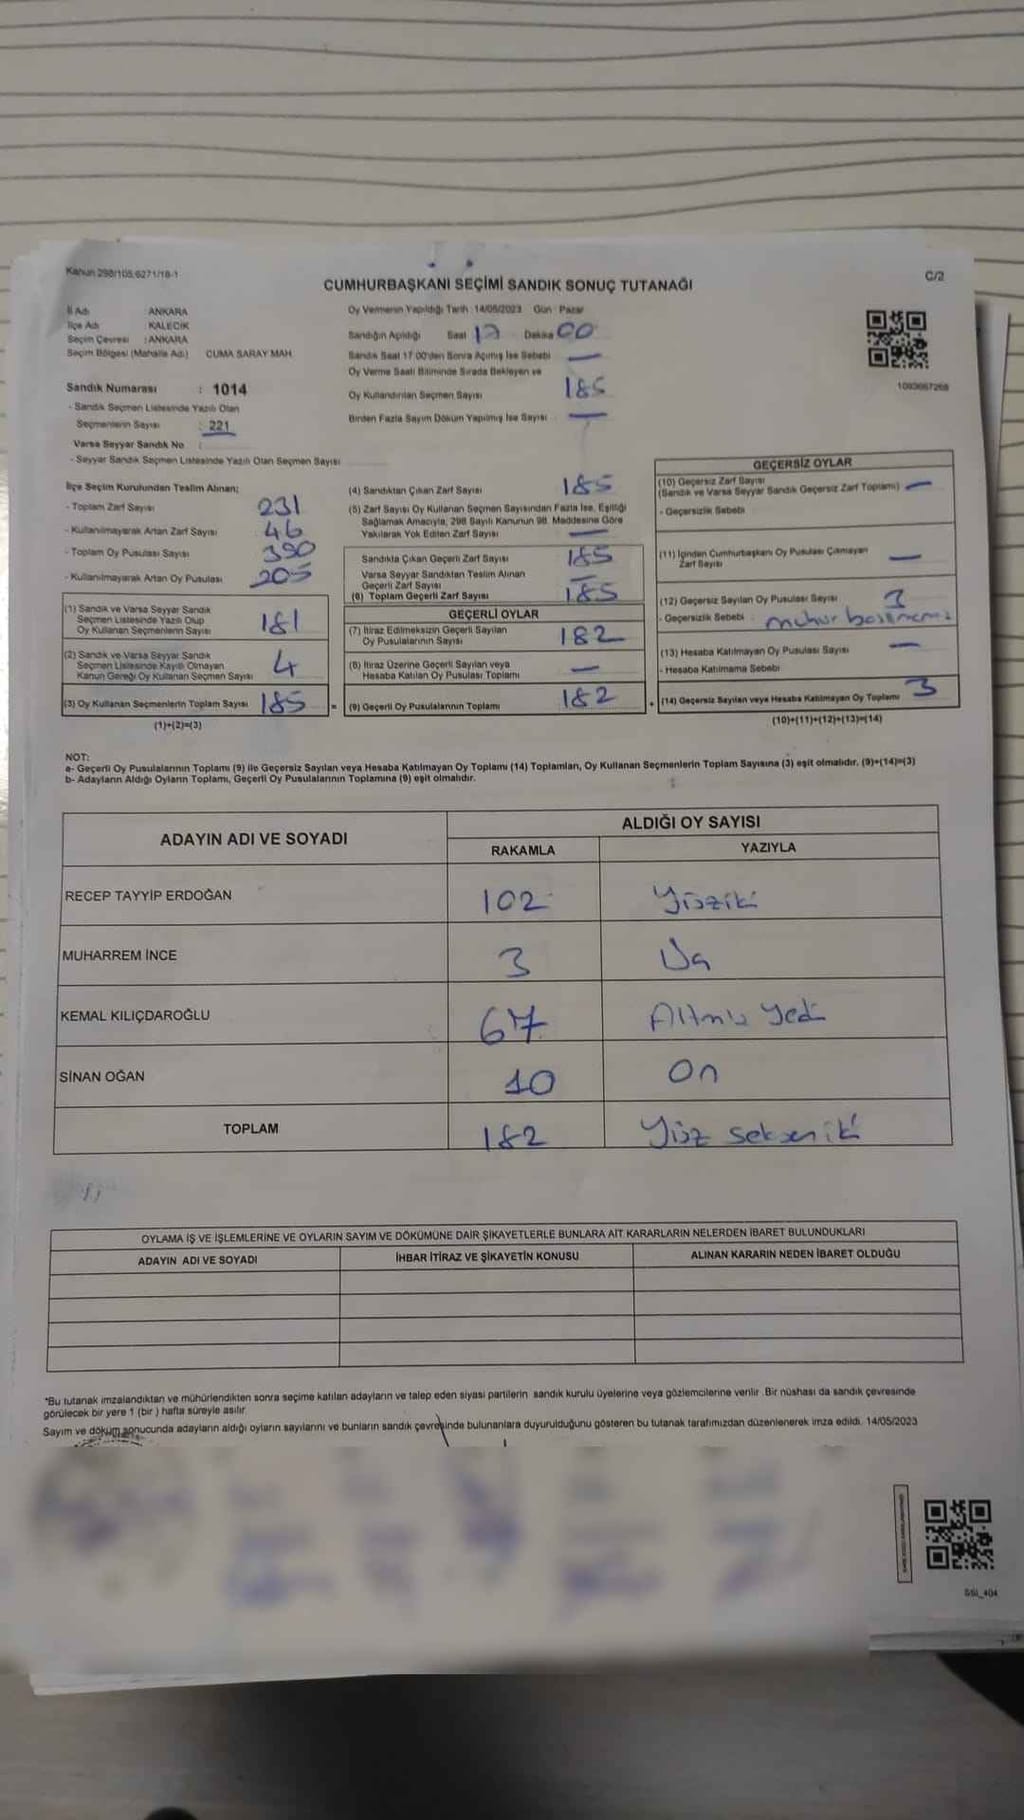 Kanun 298/105,6271/18-1
C/2
CUMHURBAŞKANI SEÇİMİ SANDIK SONUÇ TUTANAĞI
İl Adı : ANKARA
İlçe Adı : KALECİK
Seçim Çevresi : ANKARA
Seçim Bölgesi (Mahalle Adı) CUMA SARAY MAH.
Sandık Numarası : 1014
- Sandık Seçmen Listesinde Yazılı Olan
Seçmenlerin Sayısı : 221
Varsa Seyyar Sandık No
- Seyyar Sandık Seçmen Listesinde Yazılı Olan Seçmen Sayısı
Oy Vermenin Yapıldığı Tarih :14/05/2023 Gün : Pazar
Sandığın Açıldığı Saat 17 Dakika 00
Sandık Saat 17.00'den Sonra Açılmış İse Sebebi —
Oy Verme Saati Bitiminde Sırada Bekleyen ve
Oy Kullandırılan Seçmen Sayısı 185
Birden Fazla Sayım Döküm Yapılmış İse Sayısı —
1093667268
İlçe Seçim Kurulundan Teslim Alınan;
- Toplam Zarf Sayısı 231
- Kullanılmayarak Artan Zarf Sayısı 46
- Toplam Oy Pusulası Sayısı 390
- Kullanılmayarak Artan Oy Pusulası 205
(1) Sandık ve Varsa Seyyar Sandık
Seçmen Listesinde Yazılı Olup
Oy Kullanan Seçmenlerin Sayısı 181
(2) Sandık ve Varsa Seyyar Sandık
Seçmen Listesinde Kayıtlı Olmayan
Kanun Gereği Oy Kullanan Seçmen Sayısı 4
(3) Oy Kullanan Seçmenlerin Toplam Sayısı 185
(1)+(2)=(3)
(4) Sandıktan Çıkan Zarf Sayısı 185
(5) Zarf Sayısı Oy Kullanan Seçmen Sayısından Fazla İse, Eşitliği
Sağlamak Amacıyla, 298 Sayılı Kanunun 98. Maddesine Göre
Yakılarak Yok Edilen Zarf Sayısı —
Sandıkta Çıkan Geçerli Zarf Sayısı 185
Varsa Seyyar Sandıktan Teslim Alınan
Geçerli Zarf Sayısı —
(6) Toplam Geçerli Zarf Sayısı 185
GEÇERLİ OYLAR
(7) İtiraz Edilmeksizin Geçerli Sayılan
Oy Pusulalarının Sayısı 182
(8) İtiraz Üzerine Geçerli Sayılan veya
Hesaba Katılan Oy Pusulası Toplamı —
= (9) Geçerli Oy Pusulalarının Toplamı 182
GEÇERSİZ OYLAR
(10) Geçersiz Zarf Sayısı
(Sandık ve Varsa Seyyar Sandık Geçersiz Zarf Toplamı) —
- Geçersizlik Sebebi
(11) İçinden Cumhurbaşkanı Oy Pusulası Çıkmayan
Zarf Sayısı —
(12) Geçersiz Sayılan Oy Pusulası Sayısı 3
- Geçersizlik Sebebi : mühür basılmamış
(13) Hesaba Katılmayan Oy Pusulası Sayısı —
- Hesaba Katılmama Sebebi
+ (14) Geçersiz Sayılan veya Hesaba Katılmayan Oy Toplamı 3
(10)+(11)+(12)+(13)=(14)
NOT:
a- Geçerli Oy Pusulalarının Toplamı (9) ile Geçersiz Sayılan veya Hesaba Katılmayan Oy Toplamı (14) Toplamları, Oy Kullanan Seçmenlerin Toplam Sayısına (3) eşit olmalıdır. (9)+(14)=(3)
b- Adayların Aldığı Oyların Toplamı, Geçerli Oy Pusulalarının Toplamına (9) eşit olmalıdır.
ADAYIN ADI VE SOYADI
ALDIĞI OY SAYISI
RAKAMLA YAZIYLA
RECEP TAYYİP ERDOĞAN 102 Yüziki
MUHARREM İNCE 3 Üç
KEMAL KILIÇDAROĞLU 67 Altmış Yedi
SİNAN OĞAN 10 On
TOPLAM 182 Yüz seksen iki
OYLAMA İŞ VE İŞLEMLERİNE VE OYLARIN SAYIM VE DÖKÜMÜNE DAİR ŞİKAYETLERLE BUNLARA AİT KARARLARIN NELERDEN İBARET BULUNDUKLARI
ADAYIN ADI VE SOYADI İHBAR İTİRAZ VE ŞİKAYETİN KONUSU ALINAN KARARIN NEDEN İBARET OLDUĞU
*Bu tutanak imzalandıktan ve mühürlendikten sonra seçime katılan adayların ve talep eden siyasi partilerin sandık kurulu üyelerine veya gözlemcilerine verilir .Bir nüshası da sandık çevresinde
görülecek bir yere 1 (bir ) hafta süreyle asılır.
Sayım ve döküm sonucunda adayların aldığı oyların sayılarını ve bunların sandık çevresinde bulunanlara duyurulduğunu gösteren bu tutanak tarafımızdan düzenlenerek imza edildi. 14/05/2023
SSI_404